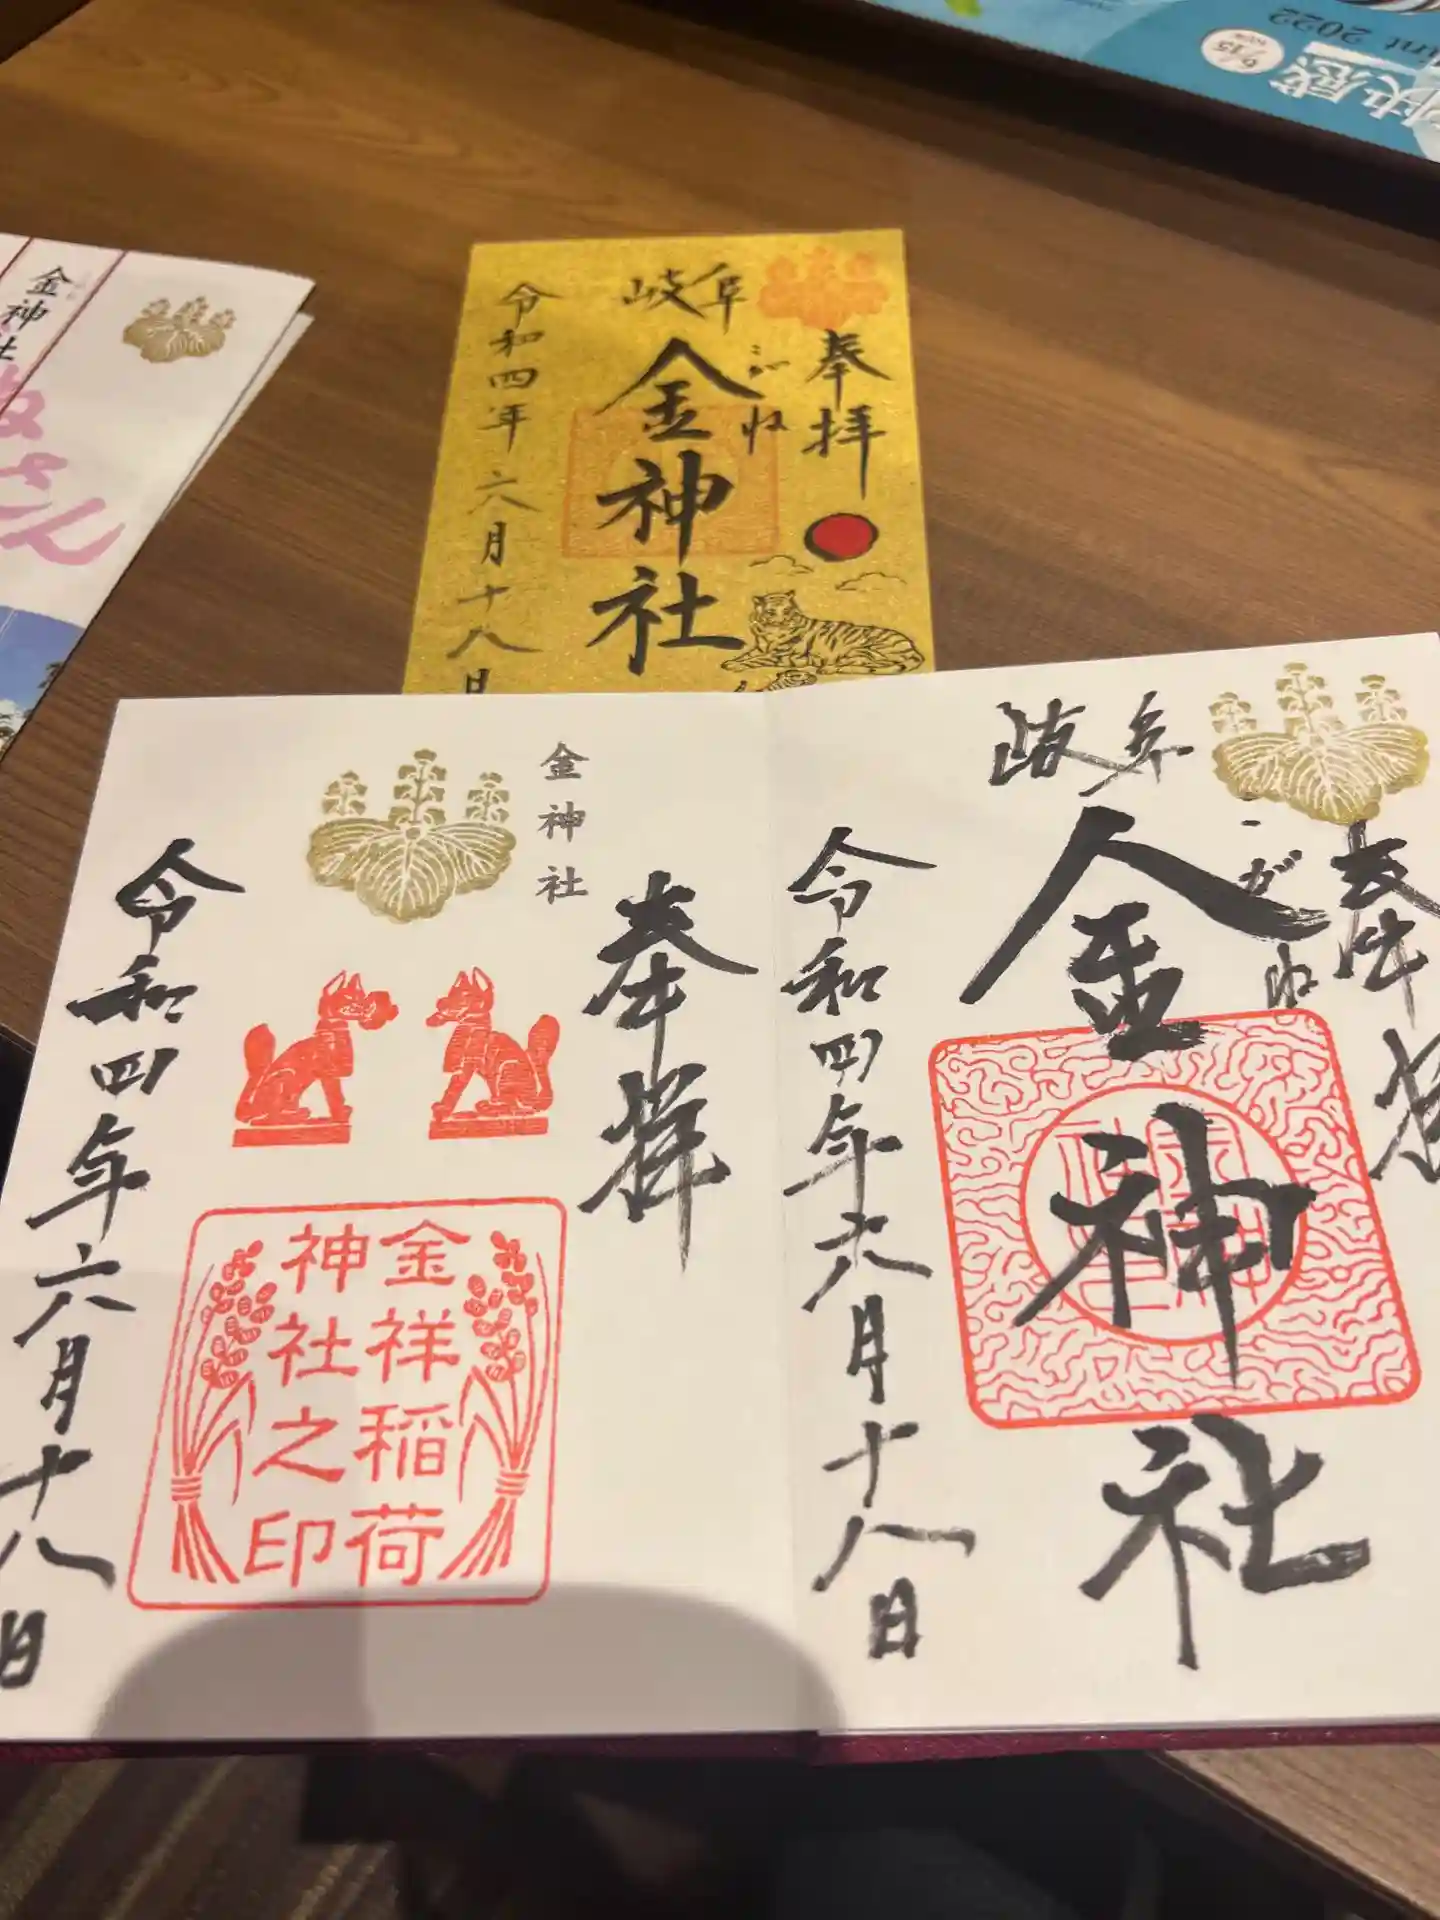 快感
2022
6/15
金神社
さん
岐阜
奉拝
こがね
金神社
令和四年六月十八日
金神社
奉拝
金祥稲荷
神社之印
令和四年六月十八日
岐阜
奉拝
こがね
金神社
令和四年六月十八日